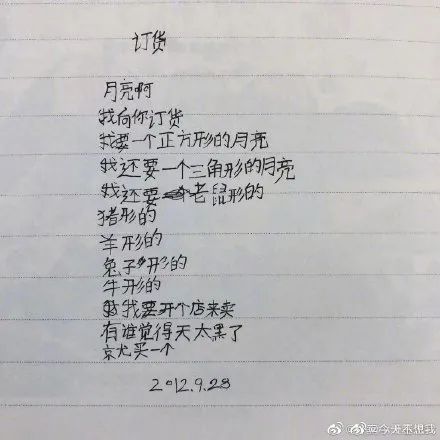 订货
月亮啊
我向你订货
我要一个正方形的月亮
我还要一个三角形的月亮
我还要老鼠形的
猪形的
羊形的
兔子形的
牛形的
我要开个店来卖
有谁觉得天太黑了
就买一个
2012.9.28
今天不想我